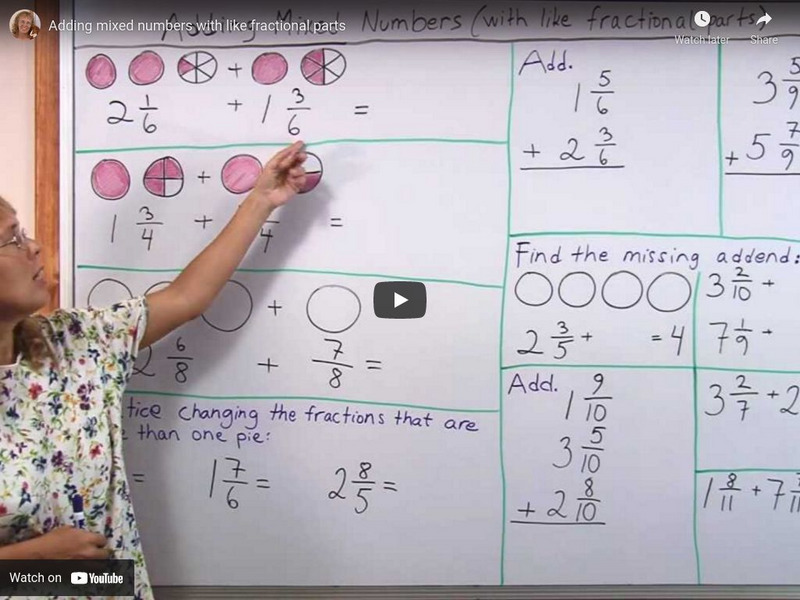 Adding mixed numbers with like fractional parts
Watch later
Share
Adding Mixed Numbers (with like fractional parts)
2 1/6 + 1 3/6 =
1 3/4 + /4 =
2 6/8 + 7/8 =
tice changing the fractions that are
than one pie:
= 1 7/6 = 2 8/5 =
Add.
1 5/6
+ 2 3/6
3 5/9
+ 5 7/9
Find the missing addend:
2 3/5 + = 4
3 2/10 +
7 1/9 +
Add.
1 9/10
3 5/10
+ 2 8/10
3 2/7 + 2
1 8/11 + 7
Watch on YouTube